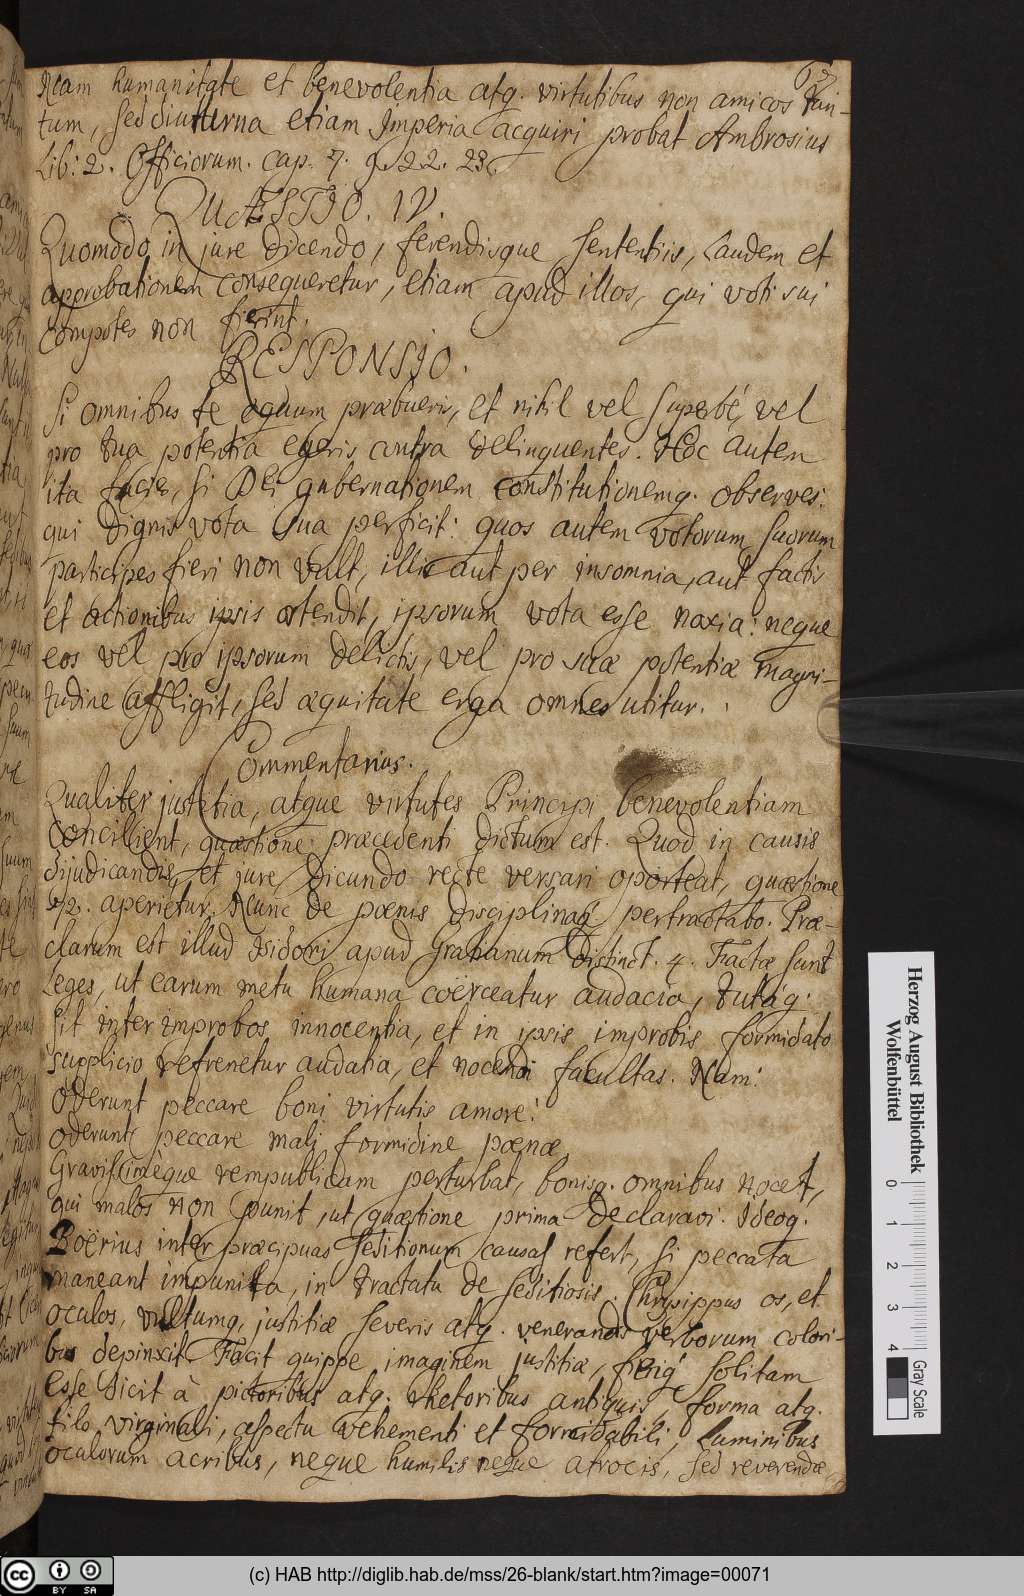 Nam humanitate et benevolentia atq. virtutibus non amicos tan-
tum, sed diuturna etiam Imperia acquiri probat Ambrosius
Lib: 2. Officiorum. cap. 7.
QUÆSTIO. IV.
Quomodo in jure dicendo, ferendisque sententiis, Laudem et
approbationem consequeretur, etiam apud illos, qui voti sui
compotes non fierint.
RESPONSIO.
Si omnibus te æquum præbueris, et nihil vel superbé, vel
pro tua potentia egeris contra delinquentes. Hoc autem
ita facies, si Dei gubernationem constitutionemq. observes:
qui dignis vota sua perficit: quos autem votorum suorum
participes fieri non vult, illis aut per insomnia, aut factis
et actionibus ipsis ostendit, ipsorum vota esse noxia: neque
eos vel pro ipsorum delictis, vel pro suæ potentiæ magni-
tudine affligit, sed æquitate erga omnes utitur.
Commentarius.
Qualiter justitia, atque virtutes Principi benevolentiam
concilient, quæstione præcedenti dictum est. Quod in causis
dijudicandis, et jure dicundo recte versari oporteat, quæstione
aperietur. Nunc de pœnis pertractabo. Præ-
clarum est illud Isidori apud Gratianum Distinct. 4. Factæ sunt
Leges, ut earum metu humana coërceatur audacia, tutáq:
sit inter improbos innocentia, et in ipsis improbis formidato
supplicio refrenetur audatia, et nocendi facultas. Nam:
Oderunt peccare boni virtutis amore:
oderunt peccare mali formidine pœnæ
Gravissiméque rempublicam perturbat, bonisq. omnibus nocet,
qui malos non punit, ut quæstione prima declaravi. Ideoq.
Boërius inter præcipuas seditionum causas refert, si peccata
maneant impunita, in tractatu de seditiosis. Chrysippus os, et
oculos, vultumq, justitiæ severis atq. venerandis verborum colori-
bus depinxit. Facit quippe imaginem justitiæ, fieriq́ solitam
esse dicit à pictoribus atq. rhetoribus antiquis, forma atq.
filo virginali, aspectu vehementi et formidabili, Luminibus
oculorum acribus, neque humilis neque atrocis, sed reverendæ
Herzog August Bibliothek
Wolfenbüttel
0 1 2 3 4
Gray Scale
cc BY SA
(c) HAB http://diglib.hab.de/mss/26-blank/start.htm?image=00071